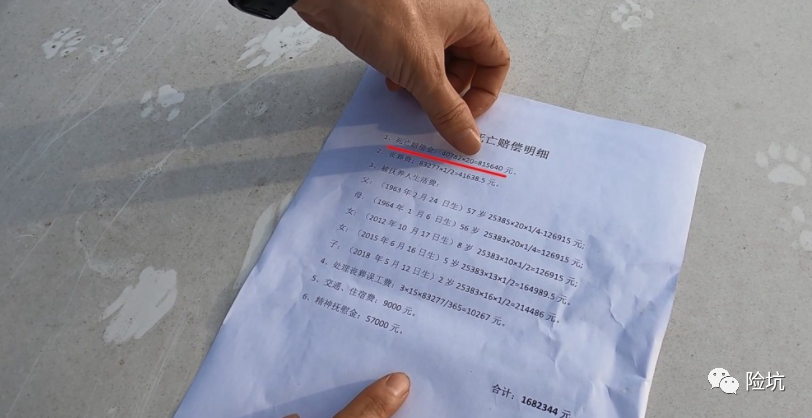 死亡赔偿明细
1、死亡赔偿金：40782×20=815640 元。
2、丧葬费：83277×1/2=41638.5 元。
3、被抚养人生活费：
父：（1963 年 2 月 24 日生）57 岁 25385×20×1/4-126915 元；
母：（1964 年 1 月 6 日生）56 岁 25383×20×1/4-126915 元；
女：（2012 年 10 月 17 日生）8 岁 25383×10×1/2=126915 元；
女：（2015 年 6 月 16 日生）5 岁 25383×13×1/2=164989.5 元；
子：（2018 年 5 月 12 日生）2 岁 25383×16×1/2=214486 元。
4、处理丧葬误工费：3×15×83277/365=10267 元。
5、交通、住宿费：9000 元。
6、精神抚慰金：57000 元。
合计：1682344 元
险坑